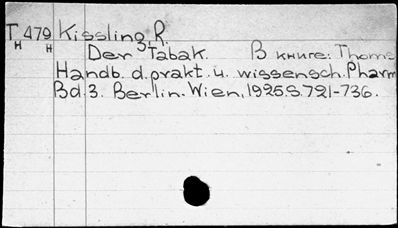 T 479 Kissling R.
н н
Der Tabak. В книге: Thoms
Handb. d. prakt. u. wissensch. Pharm
Bd. 3. Berlin. Wien, 1925. S. 721-736.